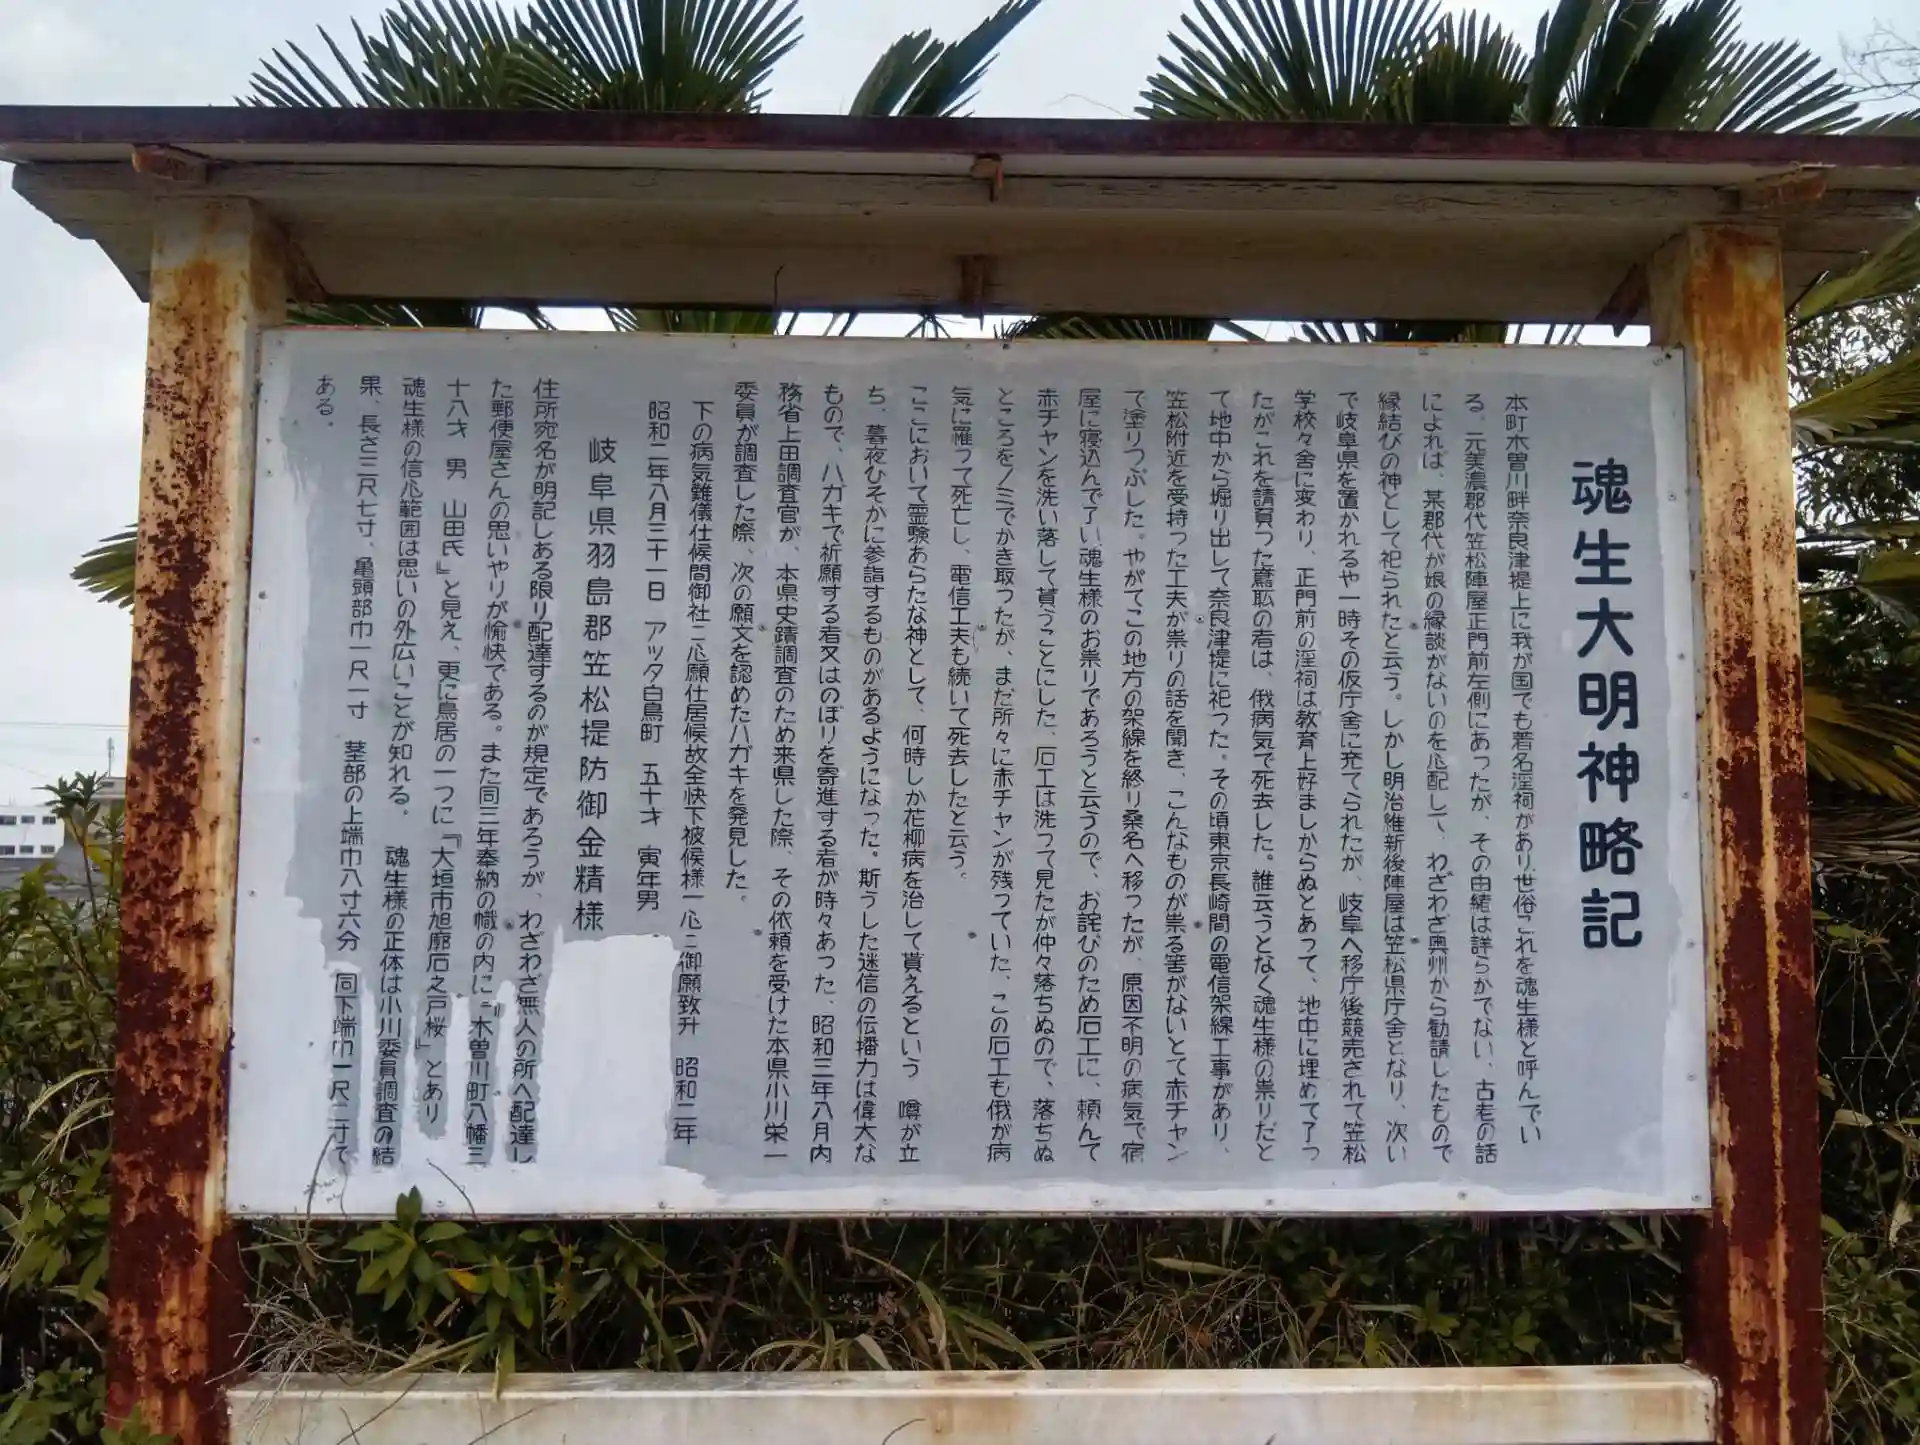 魂生大明神略記
本町木曽川畔奈良津堤上に我が国でも著名淫祠があり、世俗これを魂生様と呼んでい
る。元美濃郡代笠松陣屋正門前左側にあったが、その由緒は詳らかでない、古老の話
によれば、某郡代が娘の縁談がないのを心配して、わざわざ奥州から勧請したもので
縁結びの神として祀られたと云う。しかし明治維新後陣屋は笠松県庁舎となり、次い
で岐阜県を置かれるや一時その仮庁舎に充てられたが、岐阜へ移庁後競売されて笠松
学校々舎に変わり、正門前の淫祠は教育上好ましからぬとあって、地中に埋めて了っ
たがこれを請負った鳶職の者は、俄病気で死去した。誰云うとなく魂生様の祟りだと
て地中から堀り出して奈良津堤に祀った。その頃東京長崎間の電信架線工事があり、
笠松附近を受持った工夫が祟りの話を聞き、こんなものが祟る筈がないとて赤チャン
て塗りつぶした。やがてこの地方の架線を終り桑名へ移ったが、原因不明の病気で宿
屋に寝込んで了い魂生様のお祟りであろうと云うので、お詫びのため石工に、頼んて
赤チャンを洗い落して貰うことにした、石工は洗って見たが仲々落ちぬので、落ちぬ
ところをノミでかき取ったが、まだ所々に赤チャンが残っていた、この石工も俄が病
気に罹って死亡し、電信工夫も続いて死去したと云う。
ここにおいて霊験あらたな神として、何時しか花柳病を治して貰えるという 噂が立
ち、暮夜ひそかに参詣するものがあるようになった。斯うした迷信の伝播力は偉大な
もので、ハガキで祈願する者又はのぼりを寄進する者が時々あった、昭和三年八月内
務省上田調査官が、本県史蹟調査のため来県した際、その依頼を受けた本県小川栄一
委員が調査した際、次の願文を認めたハガキを発見した。
下の病気難儀仕候間御社ニ心願仕居候故全快下被候様一心ニ御願致升 昭和二年
昭和二年八月三十一日 アツタ白鳥町 五十才 寅年男
岐阜県羽島郡笠松提防御金精様
住所宛名が明記しある限り配達するのが規定であろうが、わざわざ無人の所へ配達し
た郵便屋さんの思いやりが愉快である。また同三年奉納の幟の内に『木曽川町八幡三
十八才 男 山田氏』と見え、更に鳥居の一つに『大垣市旭廓石之戸桜』とあり
魂生様の信心範囲は思いの外広いことが知れる。 魂生様の正体は小川委員調査の結
果、長さ三尺七寸、亀頭部巾一尺一寸 茎部の上端巾八寸六分 同下端巾一尺二寸で
ある。